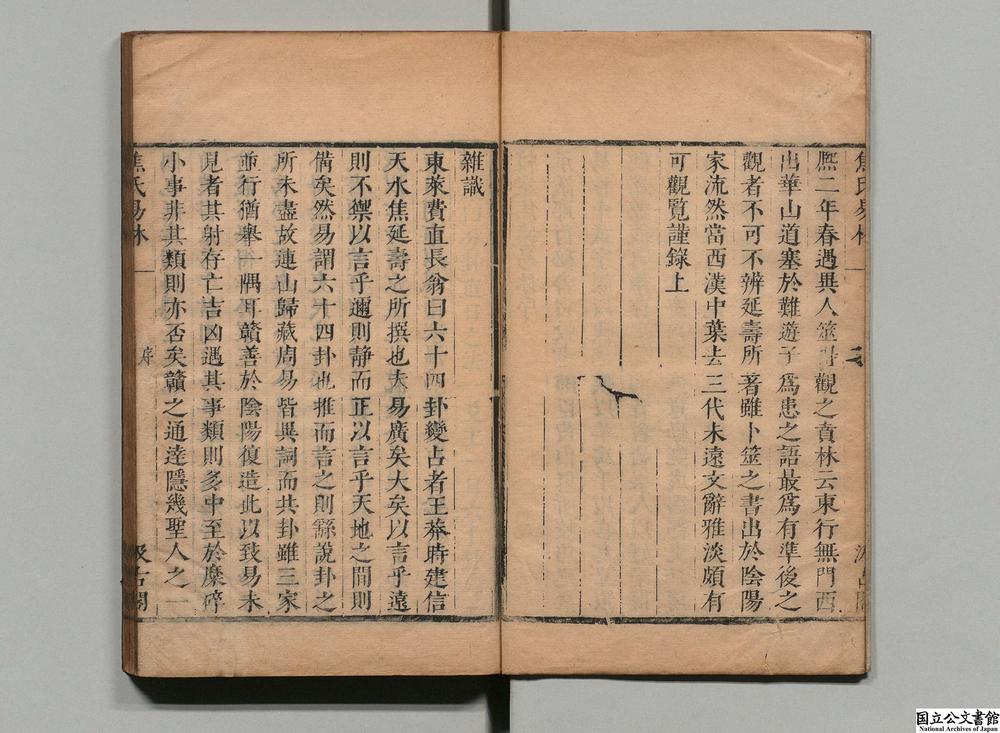 焦氏易林
一
二
汲古閣
熈二年春遇異人筮得觀之賁林云東行無門西
出華山道塞於難遊子爲患之語最爲有準後之
觀者不可不辨延壽所著雖卜筮之書出於陰陽
家流然當西漢中葉去三代未遠文辭雅淡頗有
可觀覽謹錄上
雜識
東萊費直長翁曰六十四卦變占者王莽時建信
天水焦延壽之所撰也夫易廣矣大矣以言乎遠
則不禦以言乎邇則静而正以言乎天地之間則
備矣然易謂六十四卦也推而言之則繇說卦之
所未盡故連山歸藏周易皆異詞而共卦雖三家
並行猶舉一隅耳贛善於陰陽復造此以致易未
見者其射存亡吉凶遇其事類則多中至於糜碎
小事非其類則亦否矣贛之通達隱幾聖人之一
焦氏易林
一
序
汲古閣
国立公文書館
National Archives of Japan